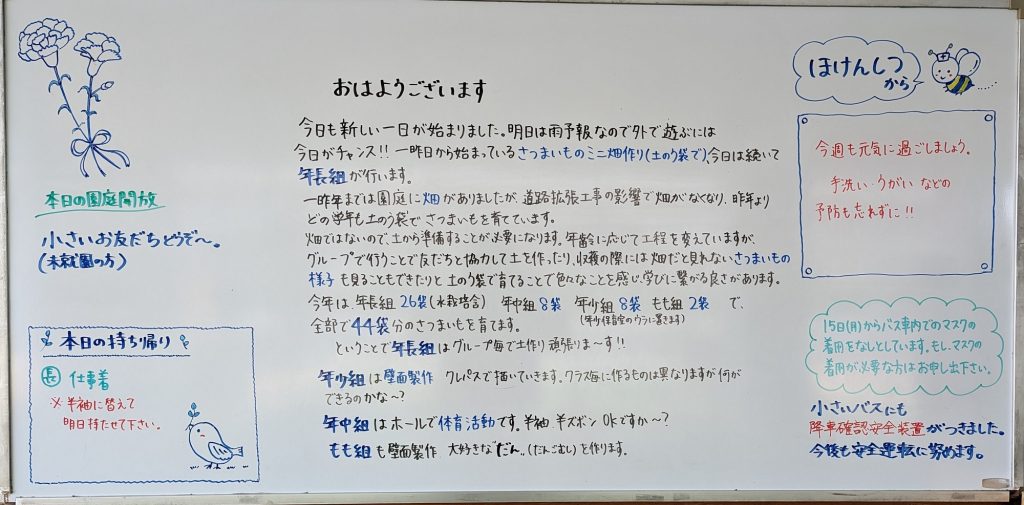 おはようございます
今日も新しい一日が始まりました。明日は雨予報なので外で遊ぶには
今日がチャンス!! 一昨日から始まっているさつまいものミニ畑作り(土のう袋で)、今日は続いて
年長組が行います。
一昨年までは園庭に畑がありましたが、道路拡張工事の影響で畑がなくなり、昨年より
どの学年も土のう袋でさつまいもを育てています。
畑ではないので、土から準備することが必要になります。年齢に応じて工程を変えていますが、
グループで行うことで友だちと協力して土を作ったり、収穫の際には畑だと見れないさつまいもの
様子も見ることもできたりと土のう袋で育てることで色々なことを感じ、学びに繋がる良さがあります。
今年は、年長組26袋(水栽培含) 年中組8袋 年少組8袋 もも組2袋 で、
(年少保育室のウラに置きます)
全部で44袋分のさつまいもを育てます。
ということで年長組はグループ毎で土作り頑張りま〜す!!
年少組は壁面製作 クレパスで描いていきます。クラス毎に作るものは異なりますが何が
できるのかな〜?
年中組はホールで体育活動です。半袖、半ズボンOKですか〜?
もも組も壁面製作 大好きな"だん"..(だんごむし)を作ります。
本日の園庭開放
小さいお友だちどうぞ〜。
(未就園の方)
本日の持ち帰り
長 仕事着
※半袖に替えて
明日持たせて下さい。
ほけんしつ
から
今週も元気に過ごしましょう。
手洗い・うがいなどの
予防も忘れずに!!
15日(月)からバス車内でのマスクの
着用をなしとしています。もし、マスクの
着用が必要な方はお申し出下さい。
小さいバスにも
降車確認安全装置がつきました。
今後も安全運転に努めます。